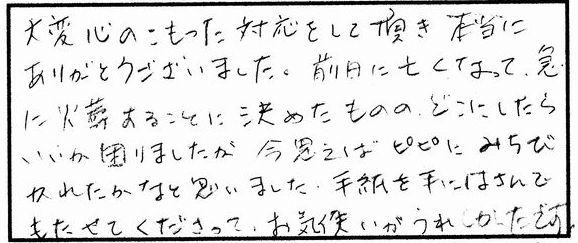 大変心のこもった対応をして頂き本当に
ありがとうございました。前日に亡くなって、急
に火葬することに決めたものの、どこにしたら
いいか困りましたが今思えばピピにみちび
かれたかなと思いました。手紙を手にはさんで
もたせてくださって、お気使いがうれしかったです